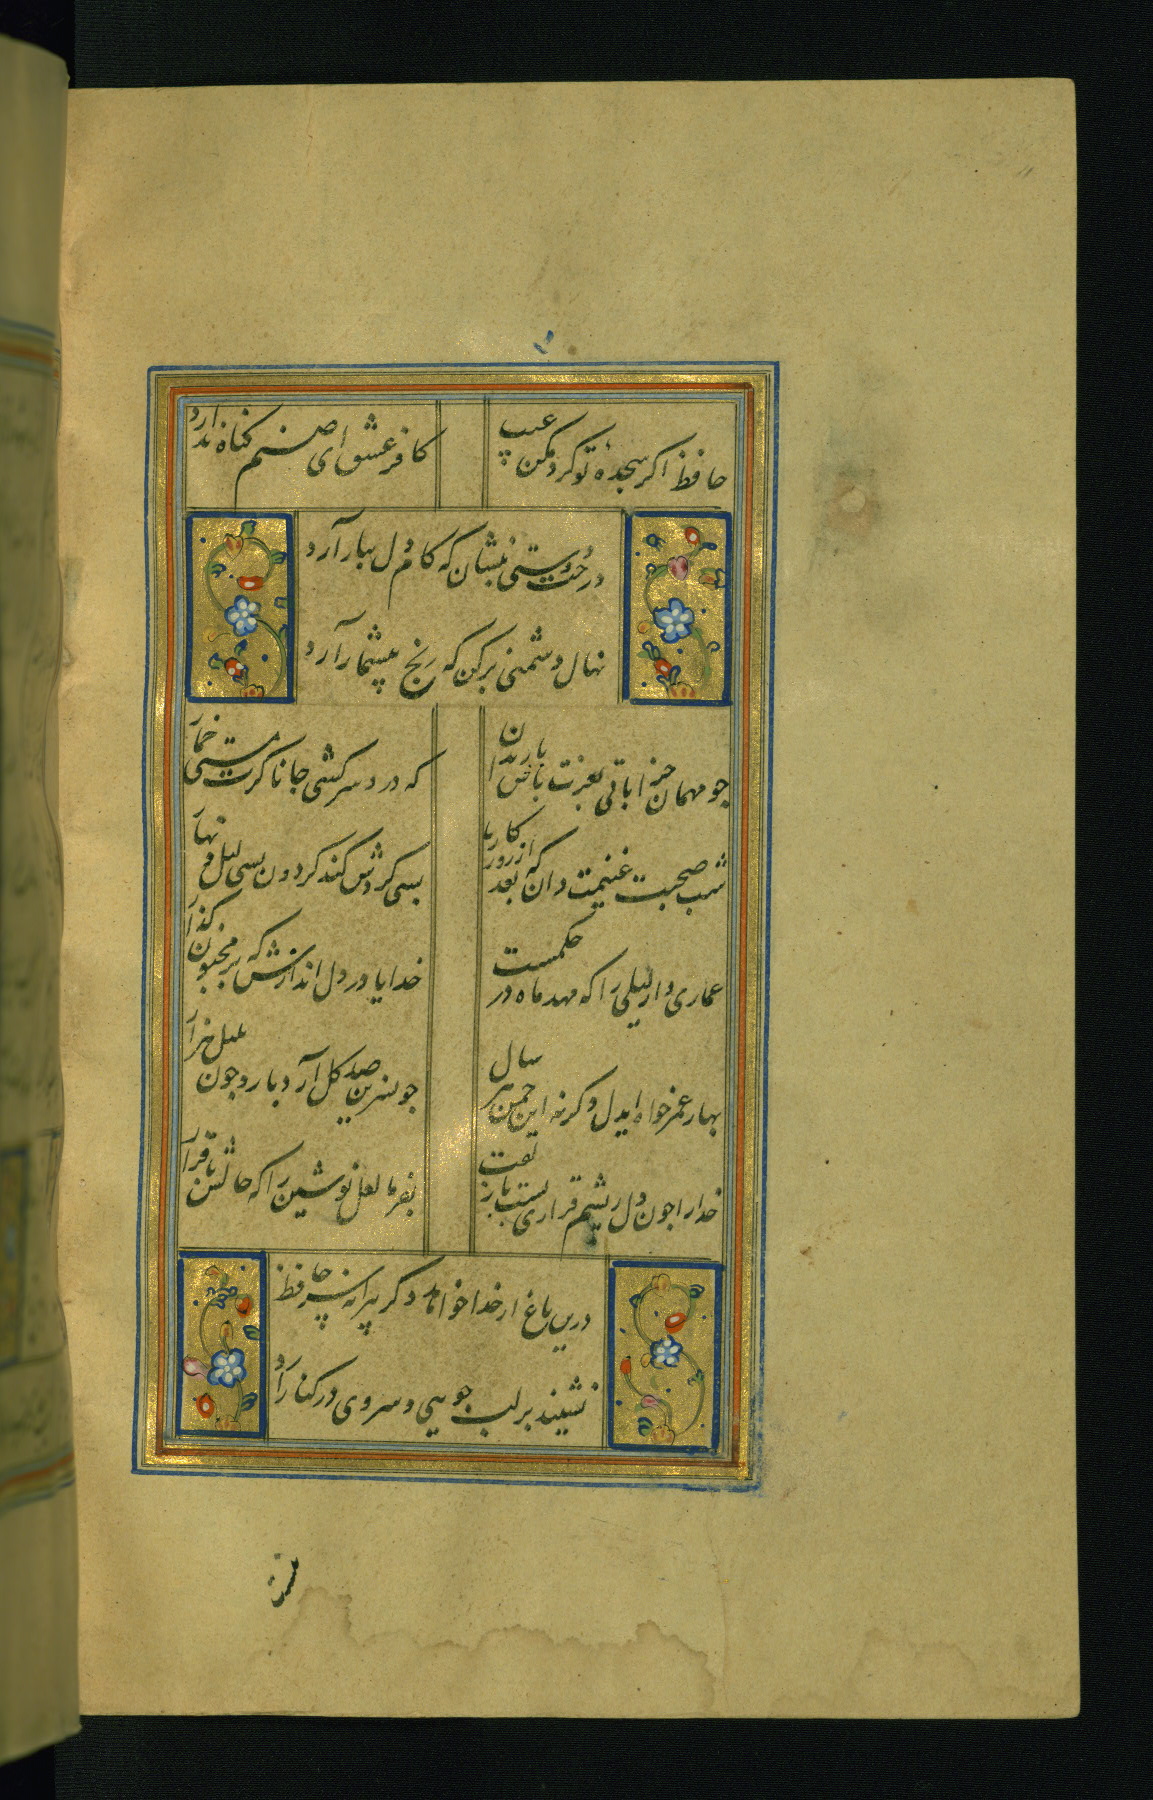 حافظ اگر سجده تو کرد مکن عیب
کافر عشق ای صنم گناه ندارد
درخت دوستی بنشان که کام دل ببار آرد
نهال دشمنی برکن که رنج بیشمار آرد
جو مهمان خراباتی بعزت باش با رندان
که درد سر کشی جانا کرت مستی خمار
شب صحبت غنیمت دان که بعد از روزکار ما
بسی کردش کند کردون بسی لیل و نهار
عماری دار لیلی را که مهد ماه در حکمست
خدایا در دل اندازش که بر مجنون کذار
بهار عمر خواه ایدل وکرنه این جمن هر سال
جو نسرین صد کل آرد بار و جون بلبل هزار
خدا را جون دل ریشم قراری بست با زلفت
بفرما لعل نوشین را که حالش با قرار
درین باغ ار خدا خواهد دکر پیرانه سر حافظ
نشیند بر لب جویی و سروی در کنار آرد